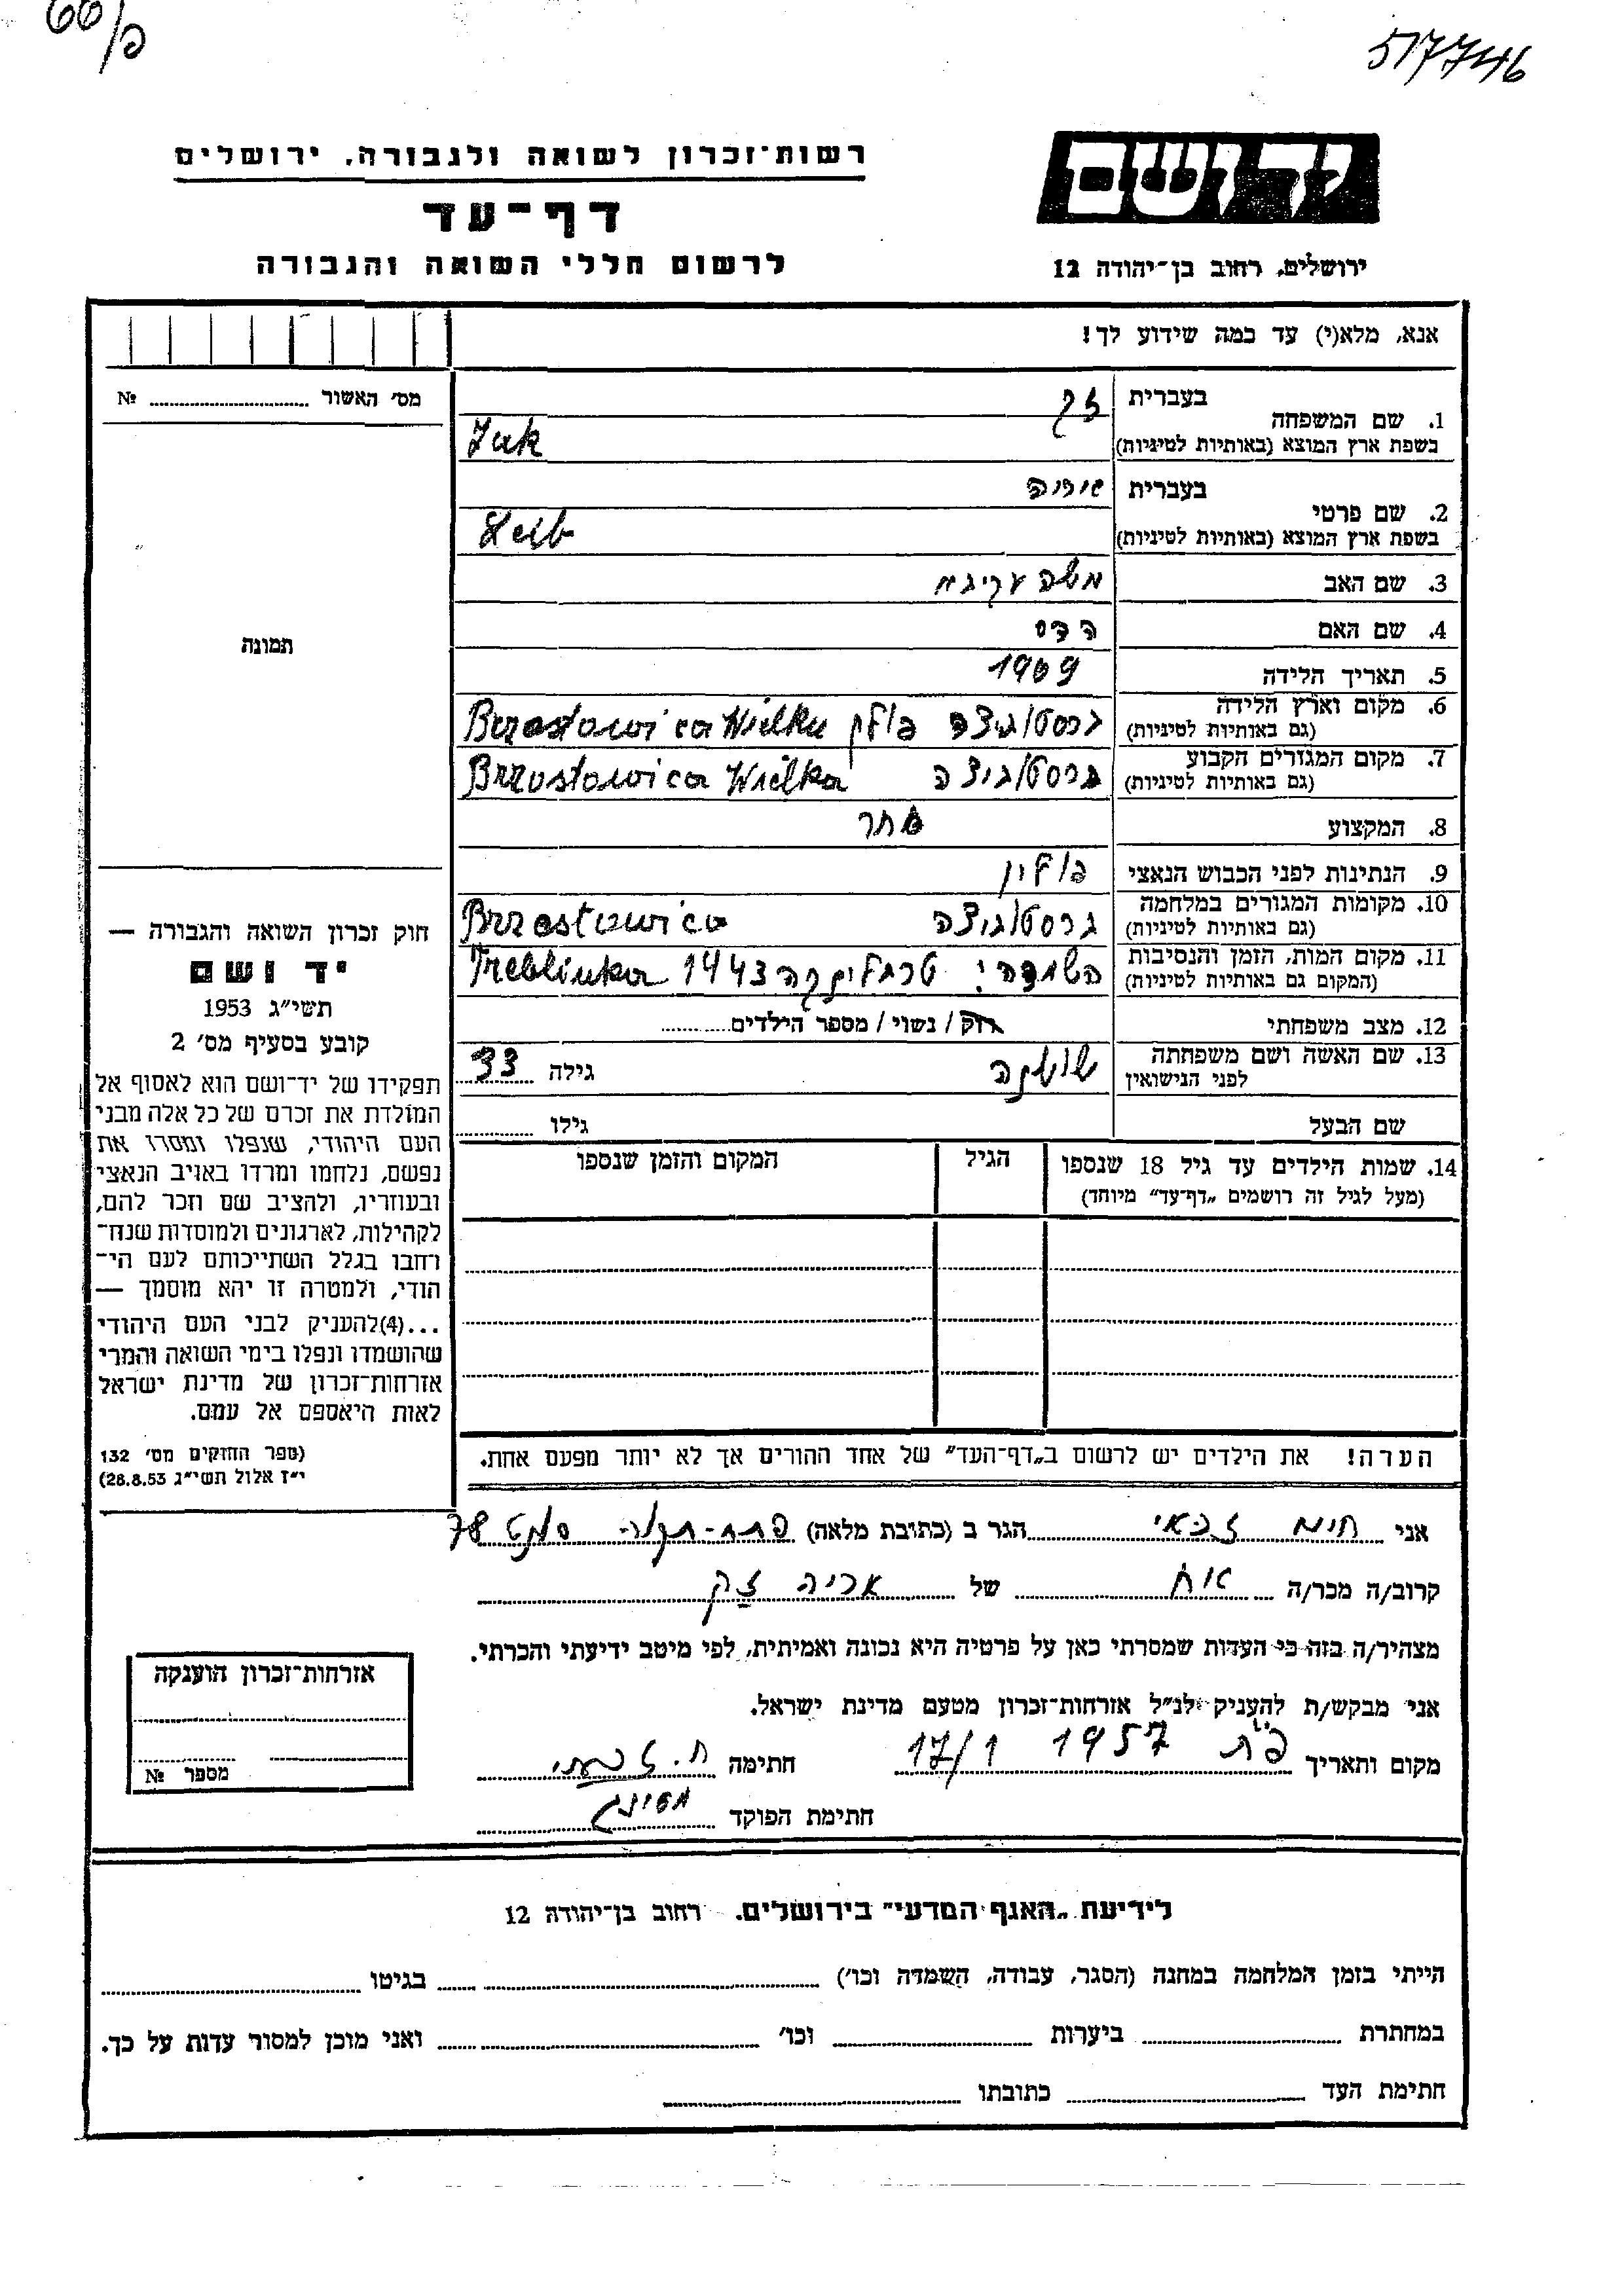 פ/66
517746
רשות-זכרון לשואה ולגבורה, ירושלים
דף-עד
לרשום חללי השואה והגבורה
יד ושם
ירושלים, רחוב בן-יהודה 12
אנא, מלא(י) עד כמה שידוע לך!
מס׳ האשור № 
תמונה
חוק זכרון השואה והגבורה —
יד ושם
תשי״ג 1953
קובע בסעיף מס׳ 2
תפקידו של יד-ושם הוא לאסוף אל
המולדת את זכרם של כל אלה מבני
העם היהודי, שנפלו ומסרו את
נפשם, נלחמו ומרדו באויב הנאצי
ובעוזריו, ולהציב שם וזכר להם,
לקהילות, לארגונים ולמוסדות שנח-
רחבו בגלל השתייכותם לעם הי-
הודי, ולמטרה זו יהא מוסמך —
...(4)להעניק לבני העם היהודי
שהושמדו ונפלו בימי השואה והמרי
אזרחות-זכרון של מדינת ישראל
לאות היאספם אל עמם.
(ספר החוקים מס׳ 132
י״ז אלול תשי״ג 28.8.53)
1. שם המשפחה בעברית זק
בשפת ארץ המוצא (באותיות לטיניות) Zak
2. שם פרטי בעברית אריה
בשפת ארץ המוצא (באותיות לטיניות) Leib
3. שם האב משה
4. שם האם הדס
5. תאריך הלידה 1909
6. מקום וארץ הלידה (גם באותיות לטיניות) ברסטוביצה פולין Brzostowica Wielka
7. מקום המגורים הקבוע (גם באותיות לטיניות) ברסטוביצה Brzostowica Wielka
8. המקצוע סחר
9. הנתינות לפני הכבוש הנאצי פולין
10. מקומות המגורים במלחמה (גם באותיות לטיניות) ברסטוביצה Brzostowica
11. מקום המות, הזמן והנסיבות (המקום גם באותיות לטיניות) השמדה טרבלינקה 1943 Treblinka
12. מצב משפחתי רוק / נשוי / מספר הילדים
13. שם האשה ושם משפחתה לפני הנישואין שושנה גילה 33
שם הבעל גילו
14. שמות הילדים עד גיל 18 שנספו הגיל המקום והזמן שנספו
(מעל לגיל זה רושמים „דף-עד״ מיוחד)
הערה! את הילדים יש לרשום ב„דף-העד״ של אחד ההורים אך לא יותר מפעם אחת.
אני חיים זכאי הגר ב (כתובת מלאה) פתח-תקוה 78
קרוב/ה מכר/ה אח של אריה זק
מצהיר/ה בזה כי העדות שמסרתי כאן על פרטיה היא נכונה ואמיתית, לפי מיטב ידיעתי והכרתי.
אני מבקש/ת להעניק לנ״ל אזרחות-זכרון מטעם מדינת ישראל.
מקום ותאריך פ״ת 1957 17/1 חתימה ח. זכאי
חתימת הפוקד
אזרחות-זכרון הוענקה
מספר №
לידיעת „האגף המדעי״ בירושלים. רחוב בן-יהודה 12
הייתי בזמן המלחמה במחנה (הסגר, עבודה, השמדה וכו׳) בגיטו
במחתרת ביערות וכו׳ ואני מוכן למסור עדות על כך.
חתימת העד כתובתו